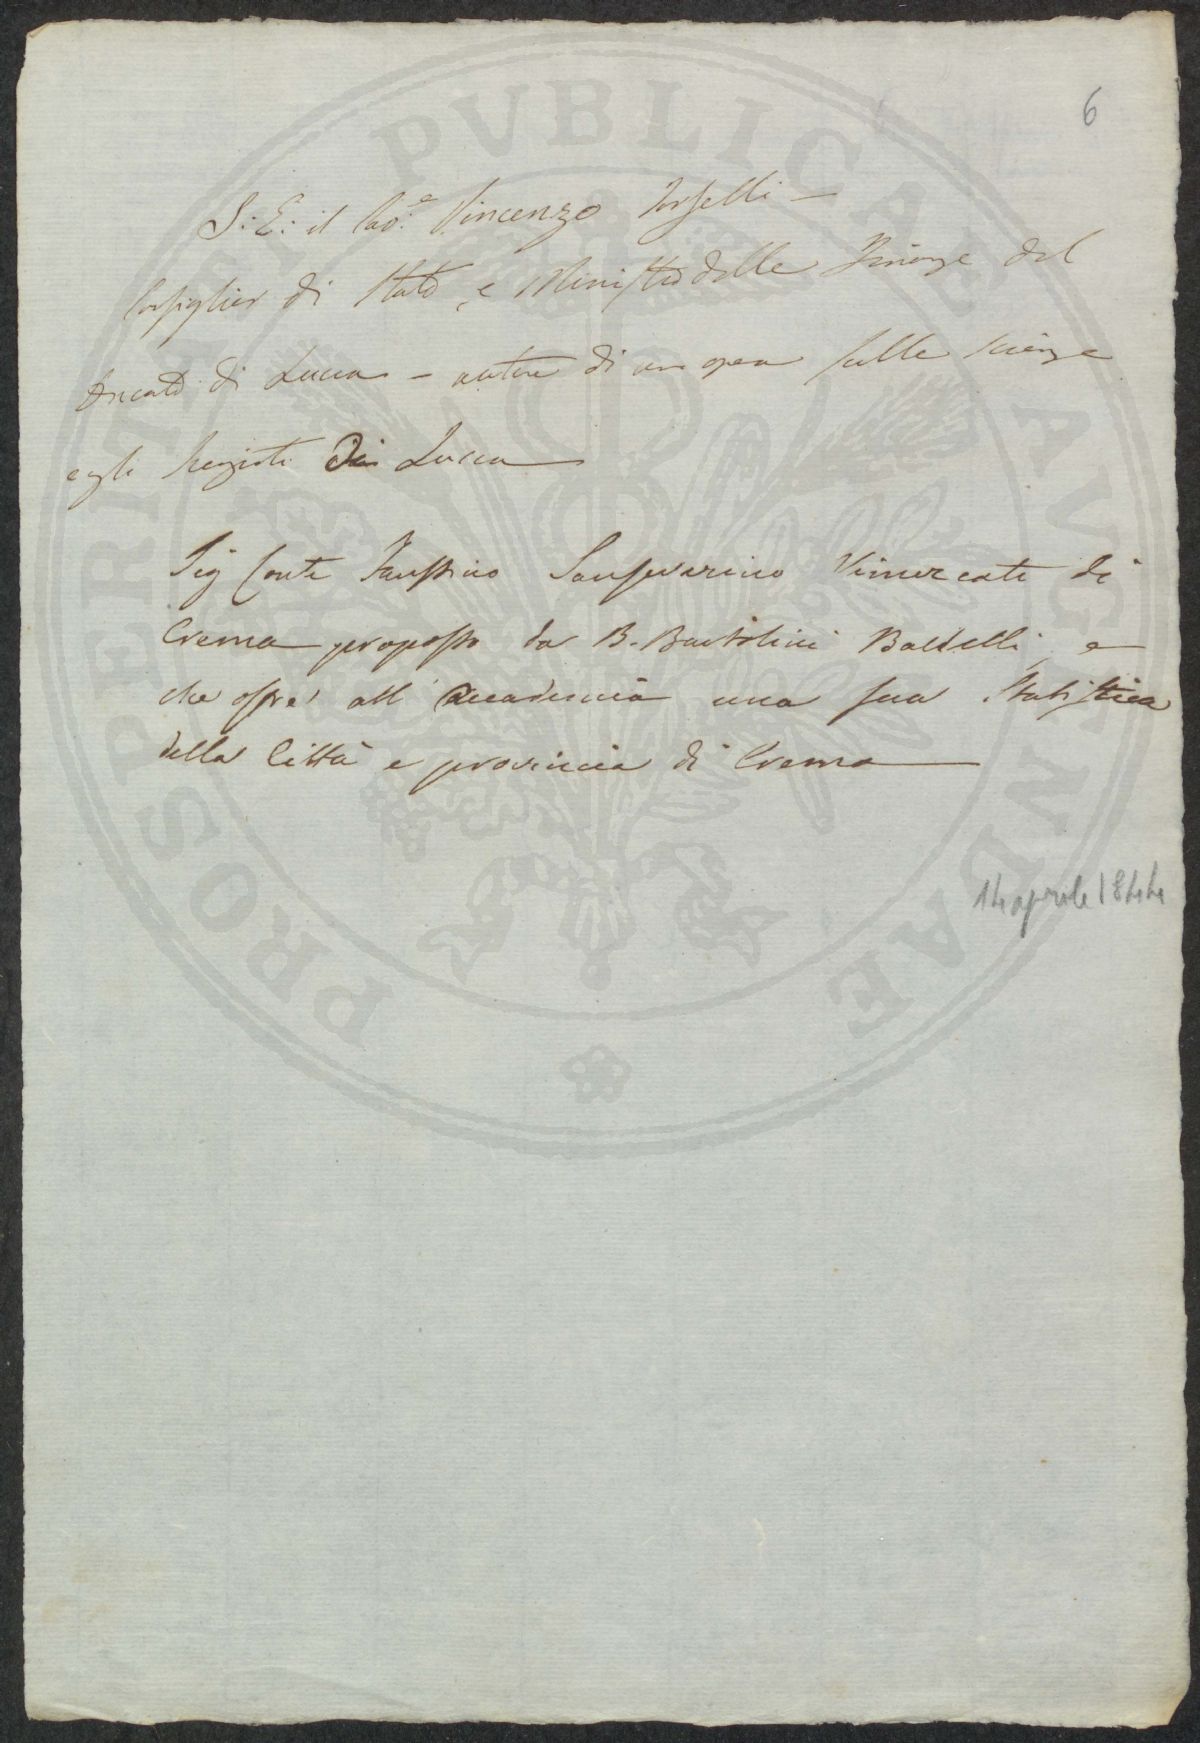 6
S: E: il Cav.e Vincenzo Torselli —
Consiglier di Stato, e Ministro delle Finanze del
Ducato di Lucca — autore di un opera sulle
egli di Lucca
Sig Conte Faustino Sanseverino Vimercati di
Crema proposto da B. Bartolini Baldelli, e
che offre all' Accademia una sua Statistica
della Città e provincia di Crema
14 aprile 1844
PROSPERITATI PVBLICAE AVGENDAE